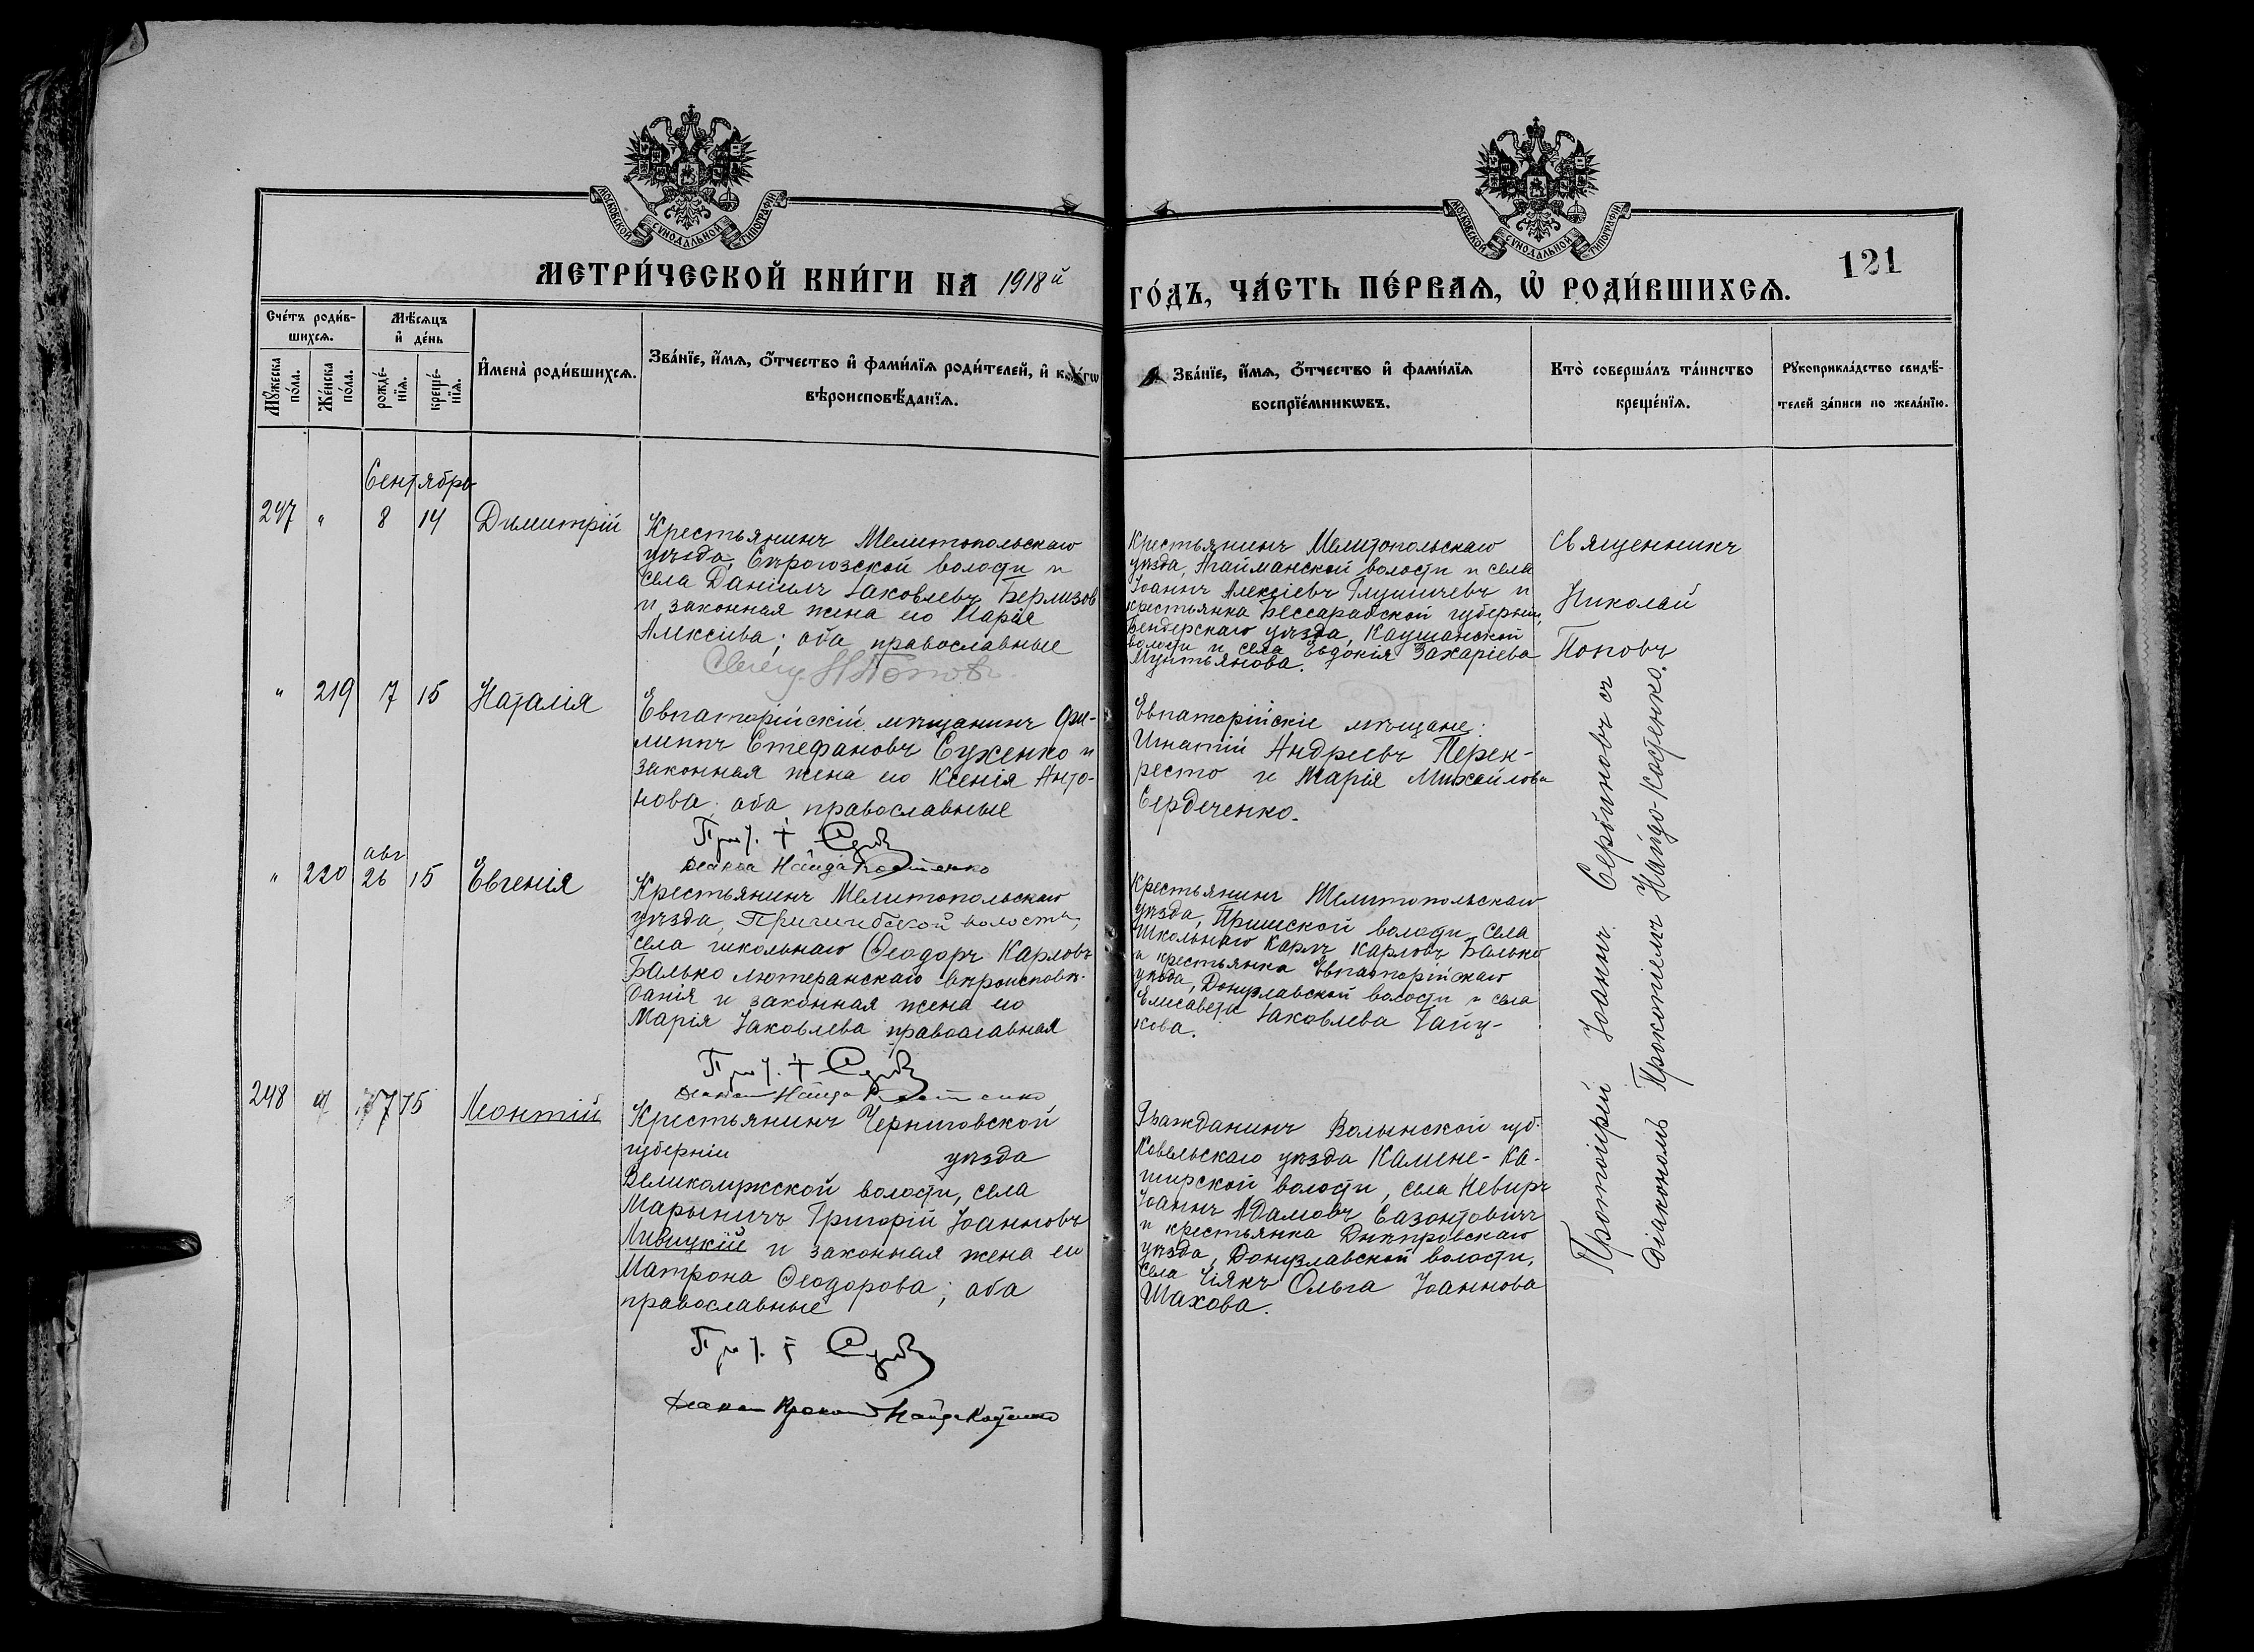 МОСКОВСКОЙ СѴНОДАЛЬНОЙ ТИПОГРАФІИ
МОСКОВСКОЙ СѴНОДАЛЬНОЙ ТИПОГРАФІИ
МЕТРИ́ЧЕСКОЙ КНИ́ГИ НА 1918й
ГО́ДЪ, ЧА́СТЬ ПЕ́РВАѦ, Ѡ РОДИ́ВШИХСѦ.
121
Сче́тъ роди́в-
шихсѧ.
Мꙋ́жеска
по́ла.
Же́нска
по́ла.
Мѣ́сѧцъ
и҆ де́нь
рожде́-
нїѧ.
креще́-
нїѧ.
И҆мена̀ роди́вшихсѧ.
Зва́нїе, и҆́мѧ, ѻ҆́тчество и҆ фами́лїѧ роди́телей, и҆
вѣроисповѣ́данїѧ.
Зва́нїе, и҆́мѧ, ѻ҆́тчество и҆ фами́лїѧ
воспрїе́мникѡвъ.
Кто̀ соверша́лъ та́инство
креще́нїѧ.
Рꙋкоприкла́дство свидѣ́-
телей за́писи по жела́нїю.
Сентября
247 " 8 14 Димитрій
Крестьянинъ Мелитопольскаго
уѣзда, Сѣрогозской волости и
села Даніилъ Іаковлевъ Берлизов
и законная жена его Марія
Алексіева; оба православные
Свящ. Н Попов
Крестьянинъ Мелитопольскаго
уѣзда, Агайманской волости и села
Іоаннъ Алексіевъ и
крестьянка Бессарабской губерніи,
Бендерскаго уѣзда, Каушанской
волости и села Евдокія Захаріева
Мунтьянова.
Священникъ
Николай
Поповъ
" 219 7 15 Наталія
Евпаторійскій мѣщанинъ Фи-
липпъ Стефановъ Суженко и
законная жена его Ксенія Анто-
нова; оба православные
Прот. †
Диакон Найда Костенко
Евпаторійскіе мѣщане:
Игнатій Андреевъ Перек-
ресто и Марія Михайлова
Сердеченко.
авг
" 220 26 15 Евгенія
Крестьянинъ Мелитопольскаго
уѣзда, Пришибской волости,
села школьнаго Ѳеодоръ Карловъ
Балько лютеранскаго вѣроисповѣ-
данія и законная жена его
Марія Іаковлева православная
Прот. †
Диакон Найда Костенко
Крестьянинъ Мелитопольскаго
уѣзда, волости, села
Школьнаго Карлъ Карловъ Балько
и крестьянка Евпаторійскаго
уѣзда, Донузлавской волости и села
Елисавета Іаковлева Гайду-
кова.
248 " 7 15 Леонтій
Крестьянинъ Черниговской
губерніи уѣзда
волости, села
Марыничъ Григорій Іоанновъ
Ливицкій и законная жена его
Матрона Ѳеодорова; оба
православные
Прот. †
Диакон Прокоп Найда Костенко
Гражданинъ Волынской губ.
Ковельскаго уѣзда Камене-Ка-
ширской волости, села Невиръ
Іоаннъ Адамовъ Сазонтовичъ
и крестьянка Днѣпровскаго
уѣзда, Донузлавской волости,
села Ольга Іоаннова
Шахова.
Протоіерей Іоаннъ Сербиновъ съ
діакономъ Прокопіемъ Найдо-Костенко.